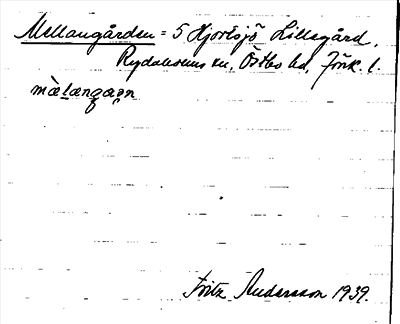 Mellangården = 5 Hjortsjö Lillegård,
Rydaholms sn, Östbo hd, Jönk. l.
mὰḻæŋgaᶇn
Fritz Andersson 1939.